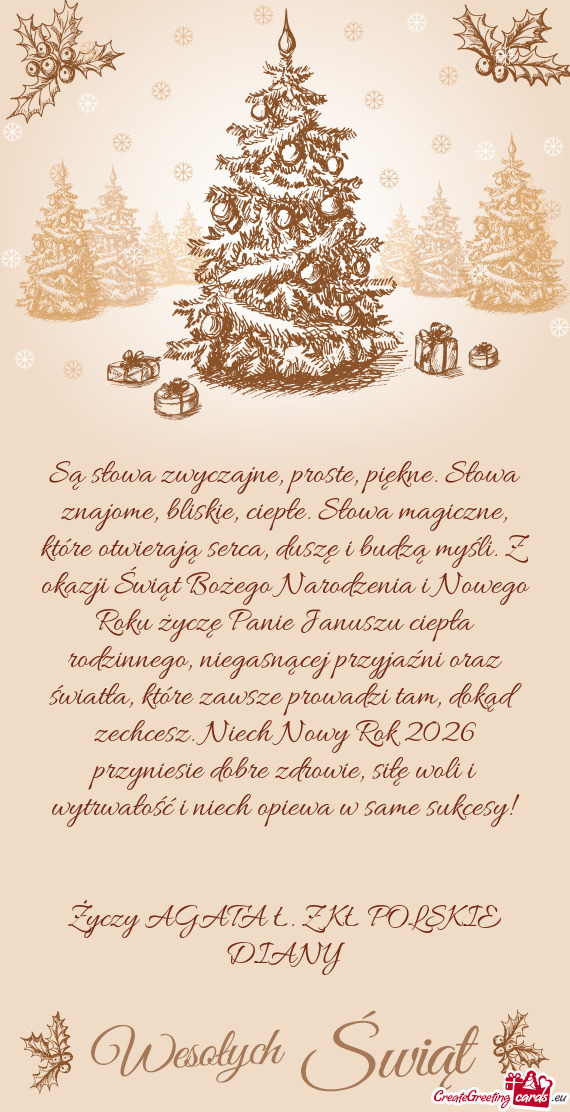 Są słowa zwyczajne, proste, piękne. Słowa
znajome, bliskie, ciepłe. Słowa magiczne,
które otwierają serca, duszę i budzą myśli. Z
okazji Świąt Bożego Narodzenia i Nowego
Roku życzę Panie Januszu ciepła
rodzinnego, niegasnącej przyjaźni oraz
światła, które zawsze prowadzi tam, dokąd
zechcesz. Niech Nowy Rok 2026
przyniesie dobre zdrowie, siłę woli i
wytrwałość i niech opiewa w same sukcesy!
Życzy AGATA Ł. Z KŁ POLSKIE
DIANY
Wesołych Świąt
CreateGreetingcards.eu